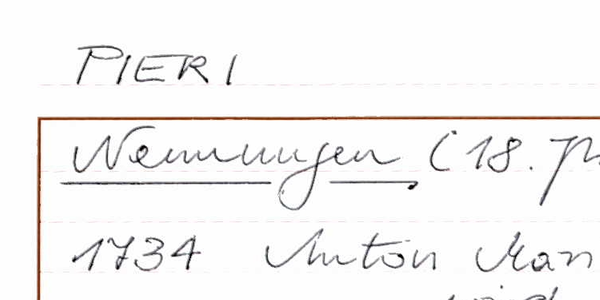 PIERI
Nennungen (18. Jh
1734 Anton Mar